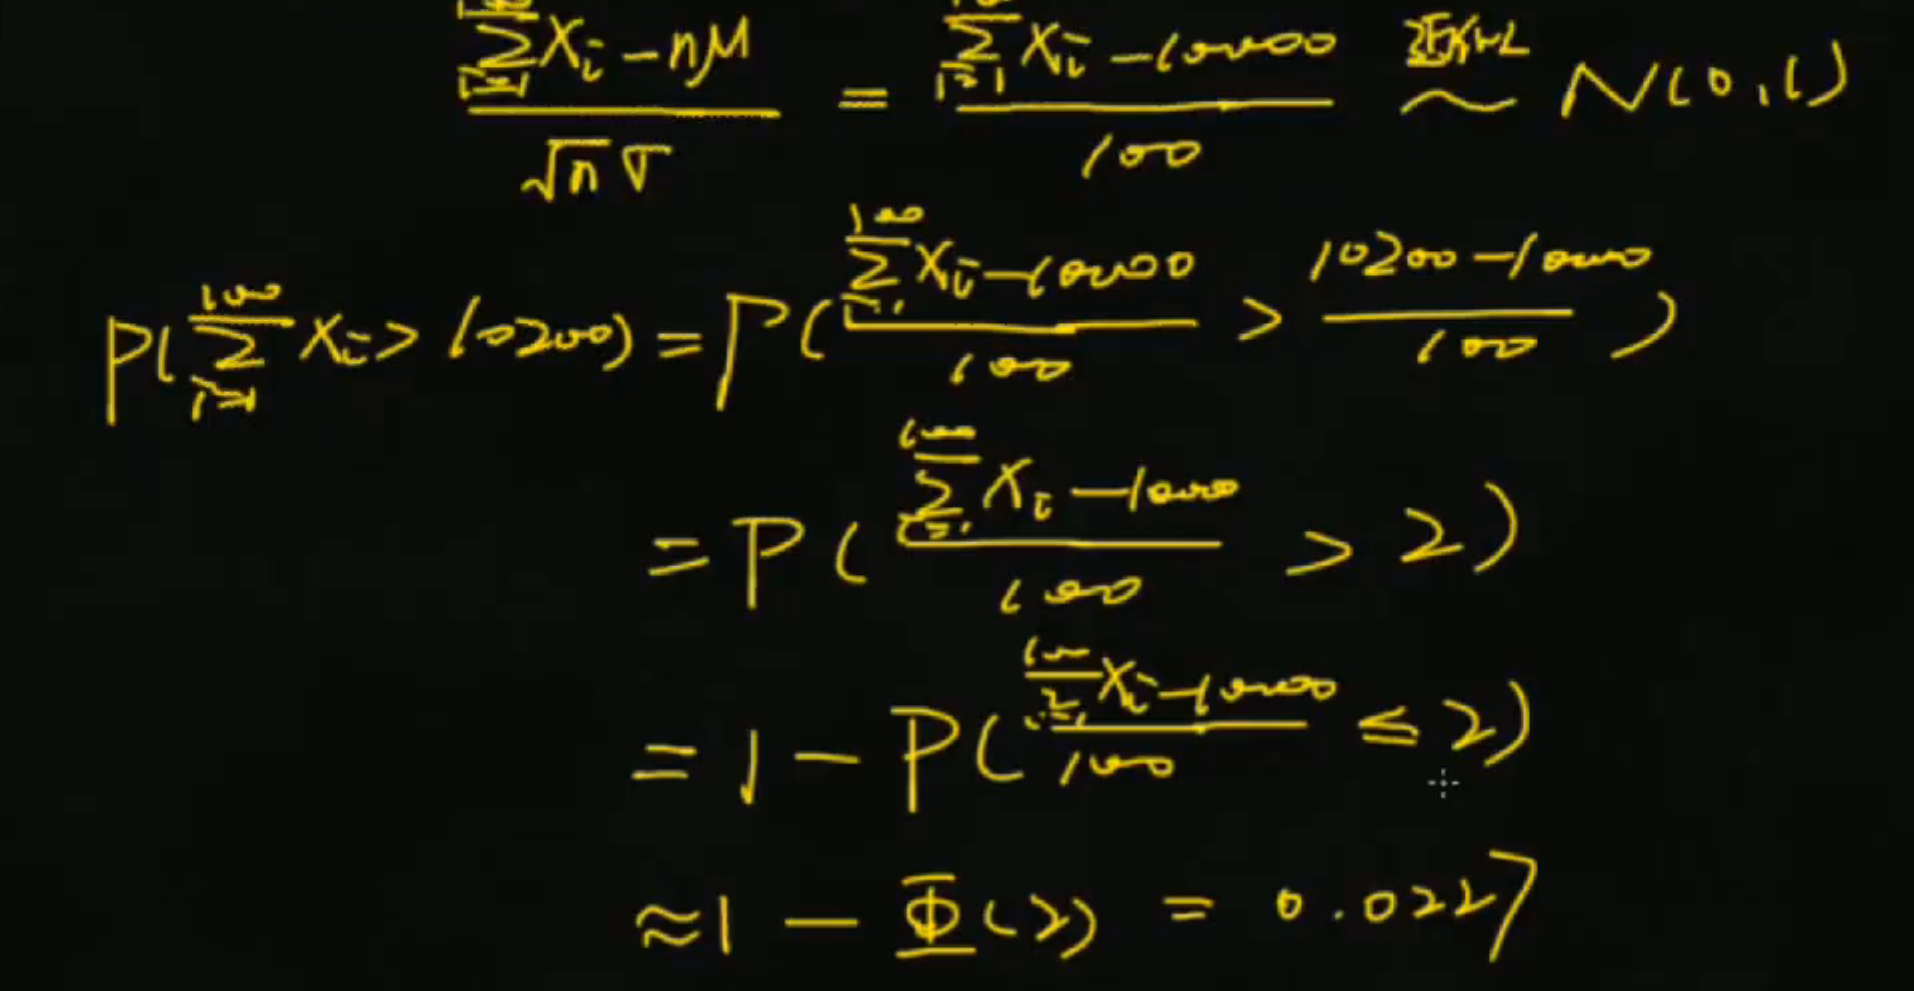 \frac{\sum_{i=1} X_i - nμ}{\sqrt{n} σ} = \frac{\sum_{i=1} X_i - 10000}{100} 近似 ~ N(0,1)
P(\sum_{i=1}^{100} X_i > 10200) = P(\frac{\sum_{i=1}^{100} X_i - 10000}{100} > \frac{10200 - 10000}{100})
= P(\frac{\sum_{i=1}^{100} X_i - 10000}{100} > 2)
= 1 - P(\frac{\sum_{i=1}^{100} X_i - 10000}{100} ≤ 2)
≈ 1 - Φ(2) = 0.0227